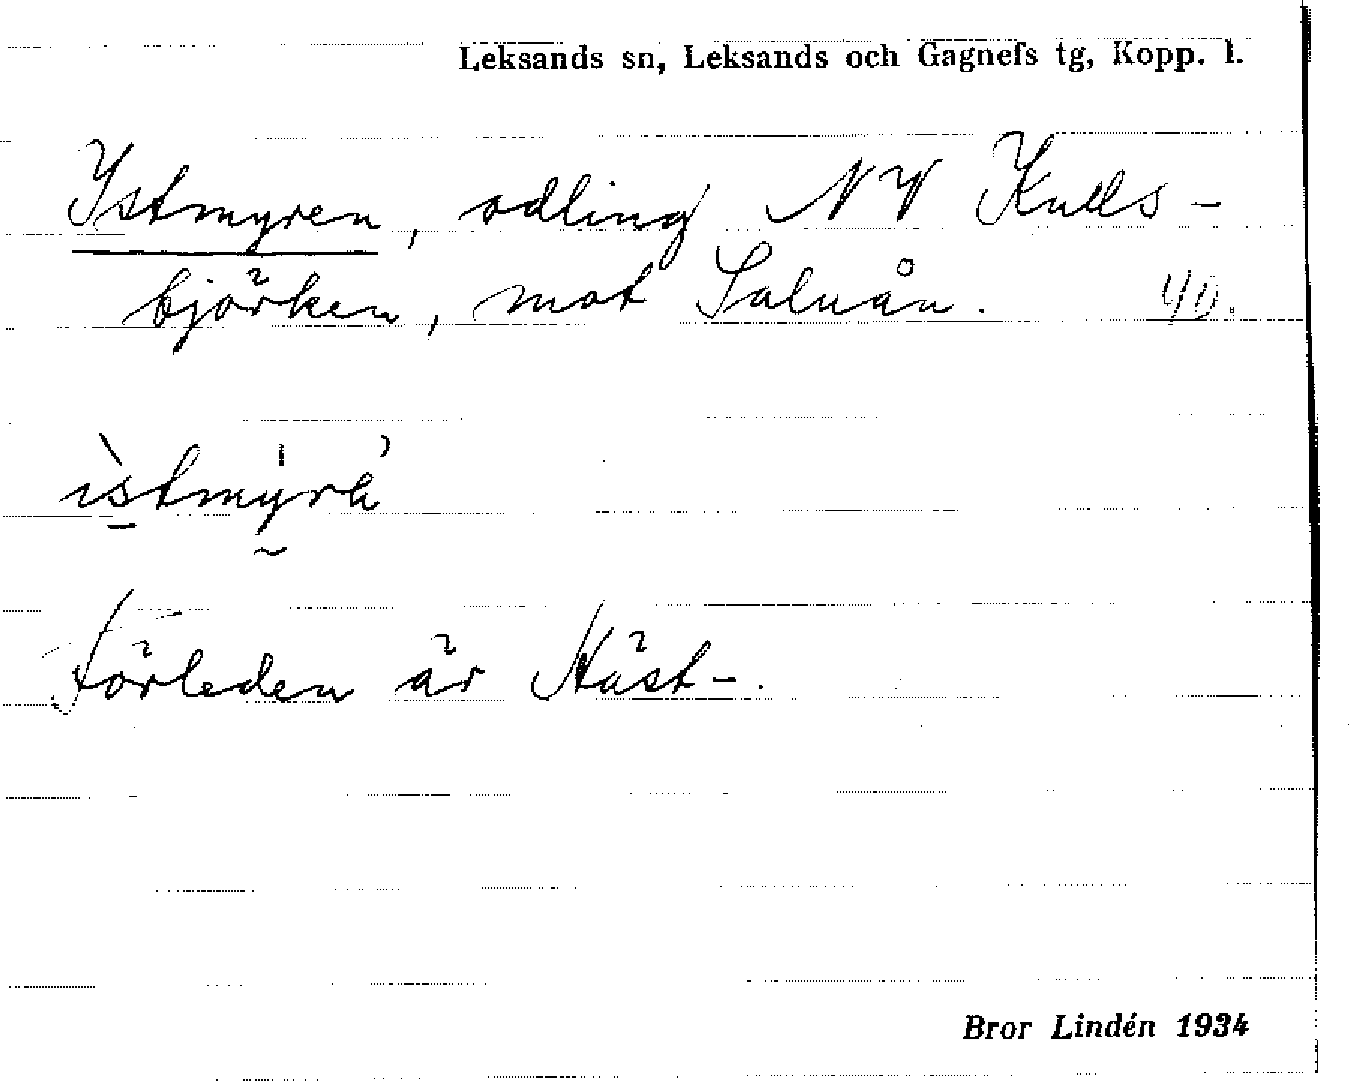 Leksands sn, Leksands och Gagnefs tg, Kopp. l.
Istmyren, odling NV Kulls-
björken, mot Saluån. 4D.
ìstmyrɑ̈
Förleden är Häst-.
Bror Lindén 1934